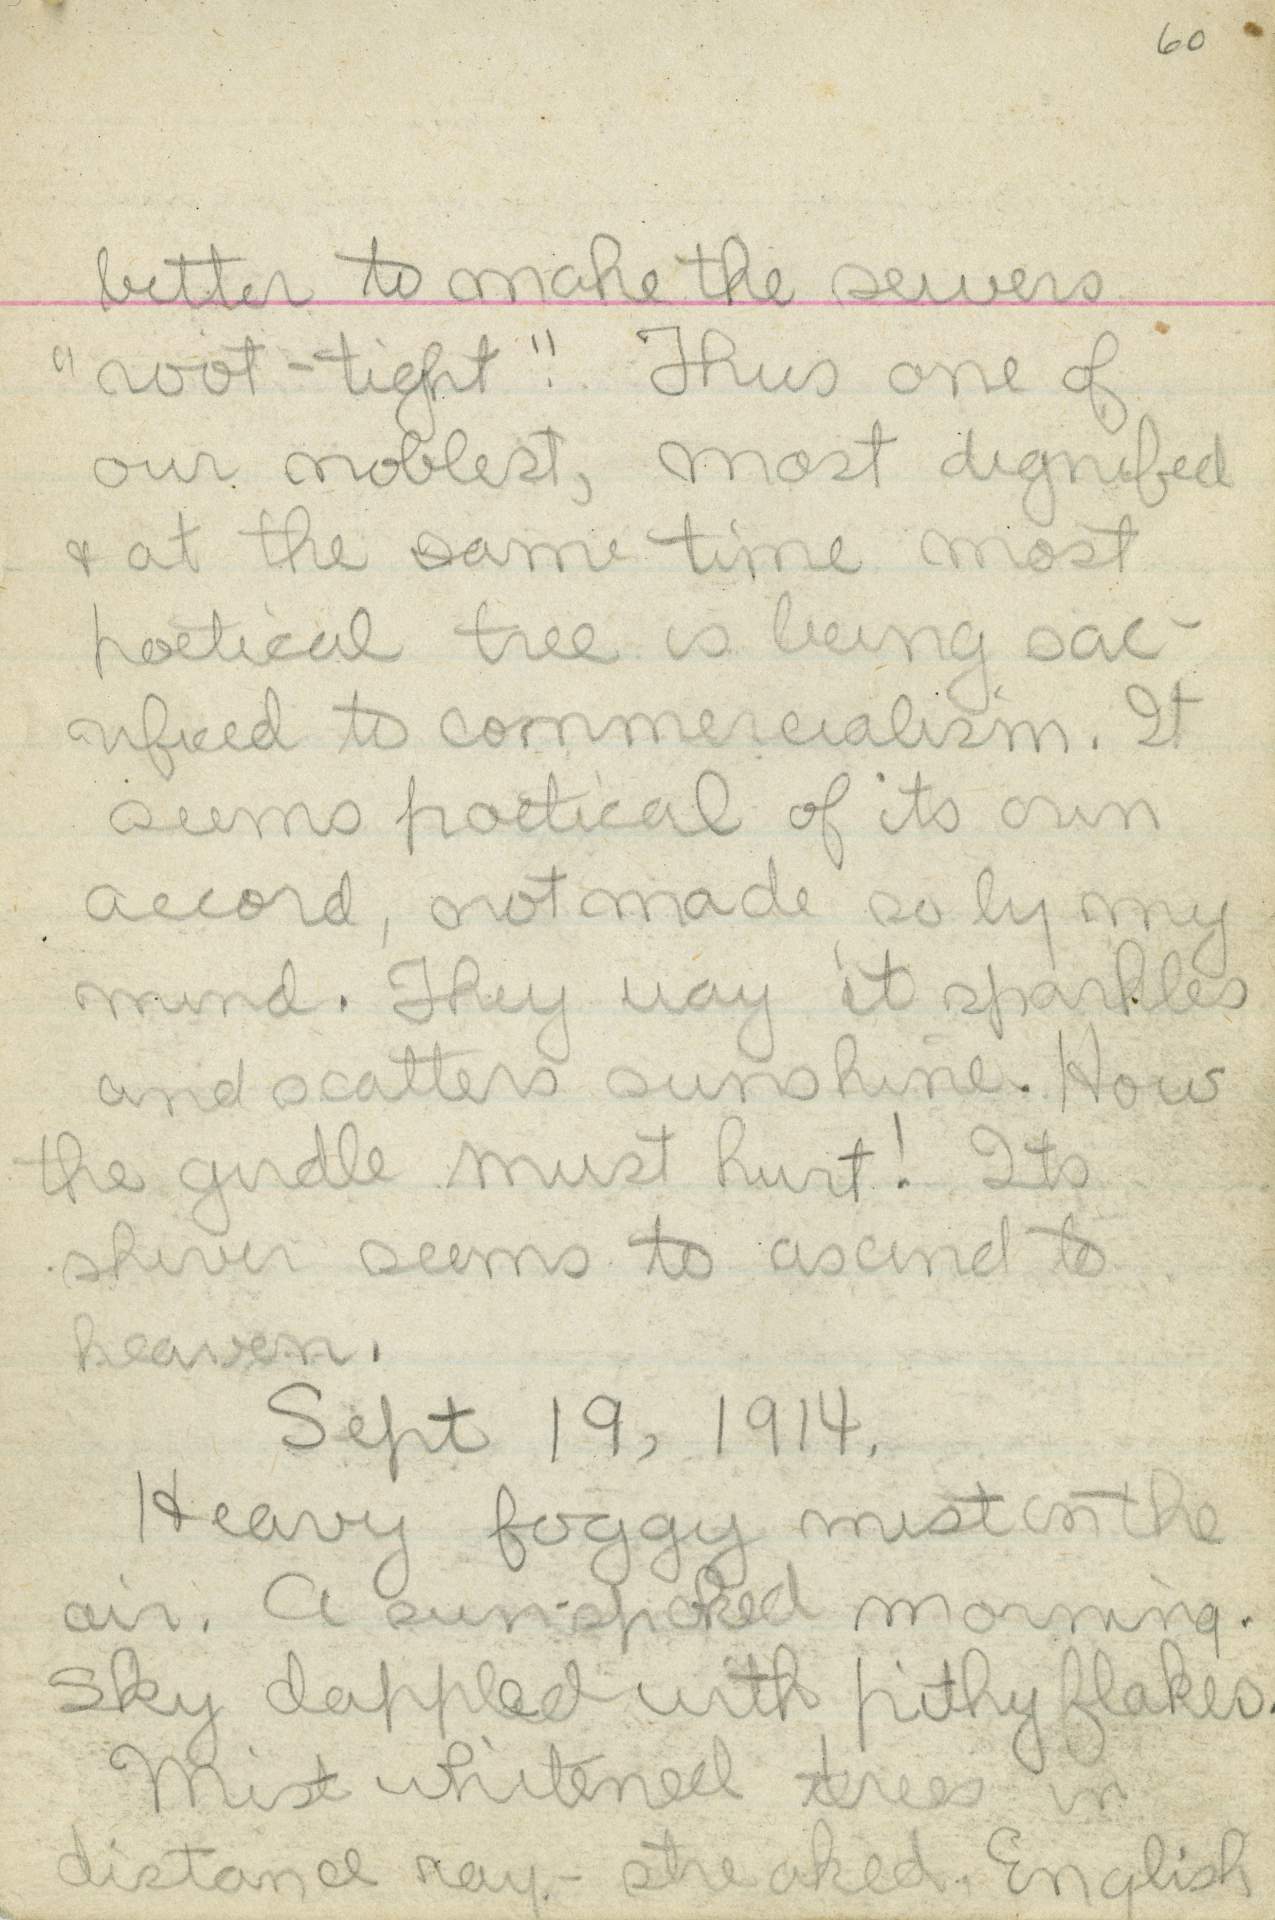 60
better to make the sewers
"root-tight". Thus one of
our noblest, most dignified
& at the same time most
poetical tree is being sac-
rificed to commercialism. It
seems poetical of its own
accord, not made so by my
mind. They way it sparkles
and scatters sunshine. How
the girdle must hurt! Its
shiver seems to ascend to
heaven.
Sept 19, 1914.
Heavy foggy mist in the
air. A sun-spoked morning.
Sky dappled with pithy flakes.
Mist whitened trees in
distance ray-streaked. English